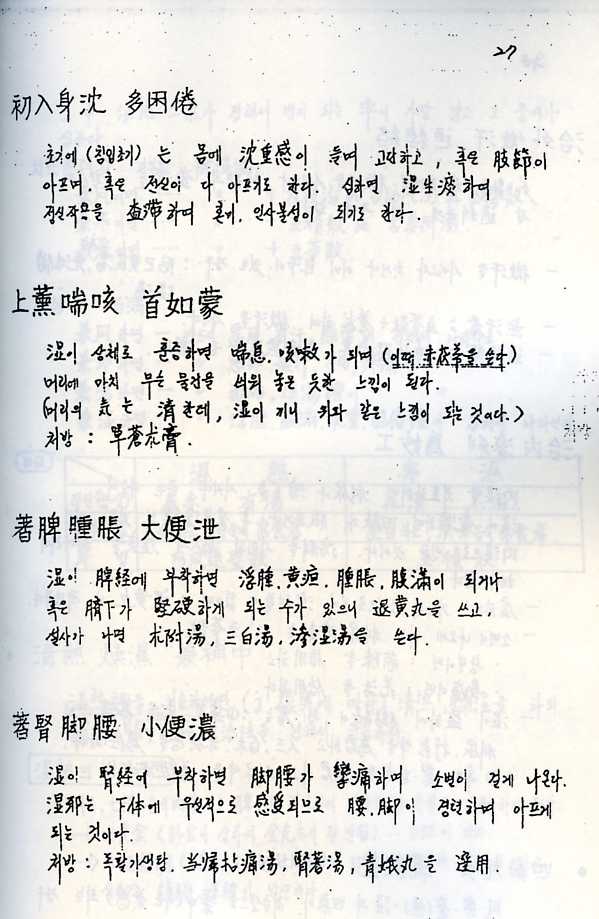 27
初入身沈 多困倦
초기에 (침입초기) 는 몸에 沈重感이 들며 고단하고, 혹은 肢節이
아프며, 혹은 전신이 다 아프기도 한다. 심하면 湿生痰하며
정신작용을 查滯하며 혼미, 인사불성이 되기도 한다.
上薰喘咳 首如蒙
湿이 상체로 훈증하면 喘息, 咳嗽가 되며 (
머리에 마치 무슨 물건을 씌워 놓은 듯한 느낌이 된다.
(머리의 気는 淸한데, 湿이 끼니 위와 같은 느낌이 되는 것이다.)
처방 : 單蒼朮膏.
처방
著脾腫脹 大便泄
湿이 脾経에 부착하면 浮腫, 黄疸, 腫脹, 腹滿이 되거나
혹은 臍下가 堅硬하게 되는 수가 있으니 退黄丸을 쓰고,
설사가 나면 朮附湯, 三白湯, 渗湿湯을 쓴다.
著腎脚腰 小便濃
湿이 腎経에 부착하면 脚腰가 攣痛하며 소변이 걸게 나온다.
湿邪는 下体에 우선적으로 感受되므로 腰, 脚이 경련하며 아프게
되는 것이다.
처방 : 독활기생탕, 当帰拈痛湯, 腎著湯, 青娥丸을 選用.